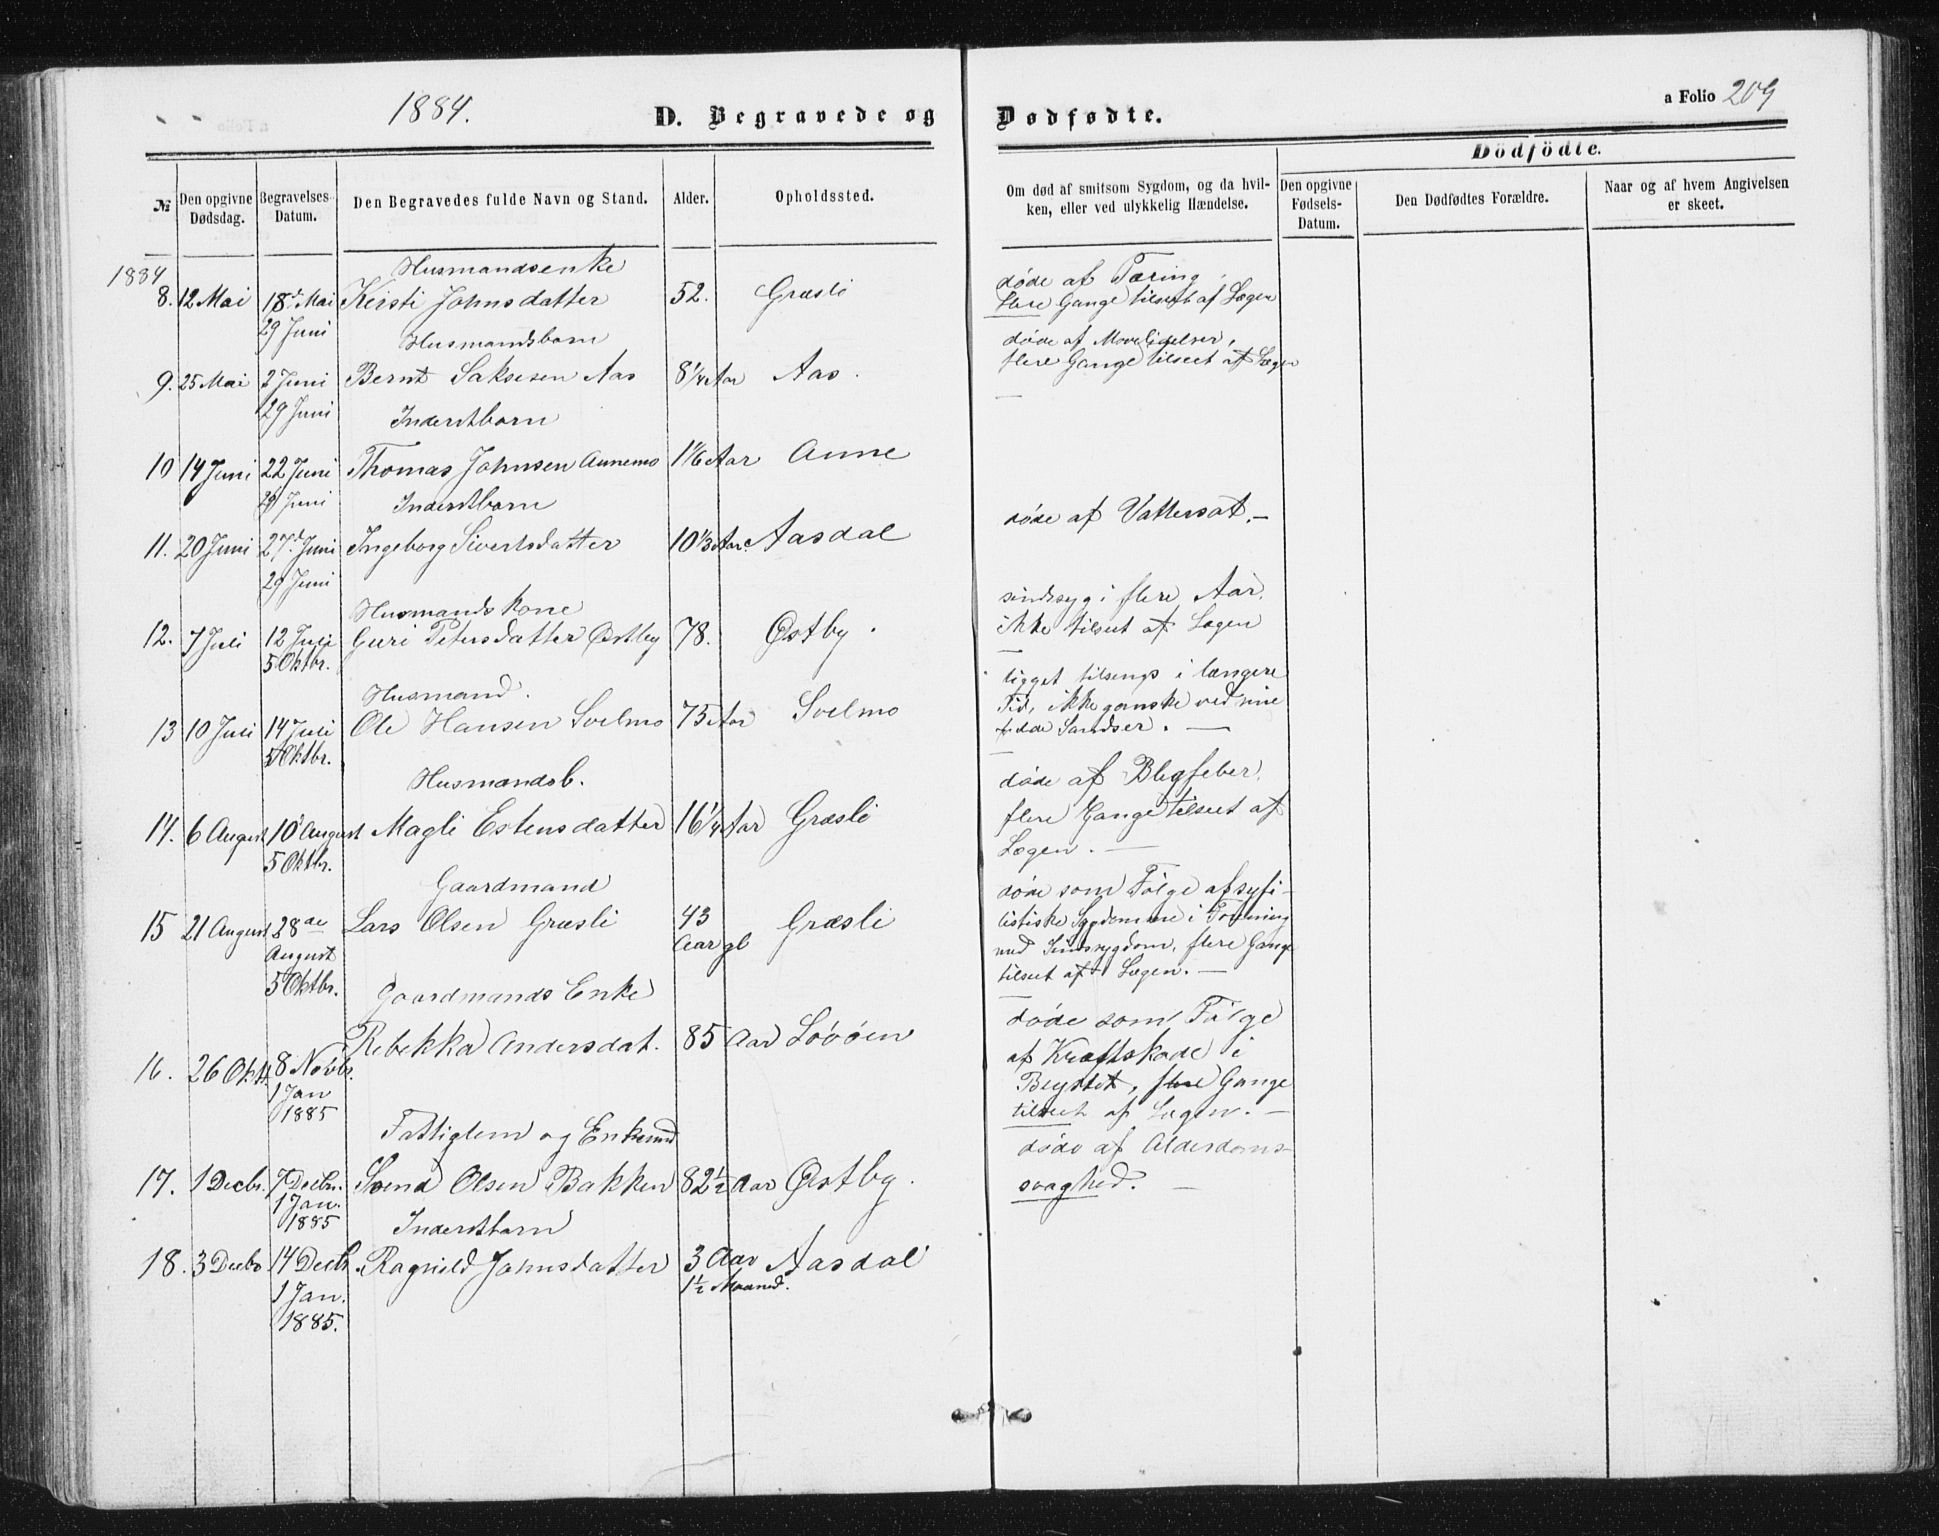 1884.
D. Begravede og Dødfødte.
a Folio 209
Dödfödte.
№
Den opgivne Dødsdag.
Begravelses-Datum.
Den Begravedes fulde Navn og Stand.
Alder.
Opholdssted.
Om død af smitsom Sygdom, og da hvil-
ken, eller ved ulykkelig Hændelse.
Den opgivne
Fødsels-
Datum.
Den Dødfødtes Forældre.
Naar og af hvem Angivelsen
er skeet.
1884
Husmandsenke
døde af Tæring,
8. 12 Mai 18d Mai Kersti Johnsdatter 52. Græsli
flere Gange tilseet af Lægen
29 Juni
Husmandsbarn
døde af
flere Gange tilseet af Lægen
9. 25 Mai 2 Juni Bernt Saksesen Aas 8 1/4 Aar Aas.
29 Juni
Inderstbarn
10 14 Juni 22 Juni Thomas Johnsen Aunemo 1 1/6 Aar Aune
29 Juni
Inderstbarn
døde af Vattersot. —
11. 20 Juni 27d Juni Ingeborg Sivertsdatter 10 1/3 Aar. Aasdal
29 Juni
Husmandskone
sindssyg i flere Aar,
12. 7 Juli 12 Juli Guri Petersdatter Østby 78. Østby.
ikke tilseet af Lægen
5 Oktbr.
Husmand.
ligget tilsengs i længere
13 10 Juli 14 Juli Ole Hansen Svelmo 75 Aar Svelmo
Tid, ikke ganske ved sine
fulde Sandser. —
5 Oktbr.
Husmandsb.
døde af
14. 6 August 10 August Magli Estensdatter 16 1/4 Aar Græsli
flere Gange tilseet af
Lægen. —
5 Oktbr.
Gaardmand
døde som Følge af syfi-
15 21 August 28de August Lars Olsen Græsli 43 Aar gl Græsli
listiske Sygdomme i Forening
med Sindssygdom, flere Gange
tilseet af Lægen. —
5 Oktbr.
Gaardmands Enke
døde som Følge
16. 26 Oktb. 8 Novbr. Rebekka Andersdat. 85 Aar Løvøen
af Kræftskade i
Brystet, flere Gange
tilseet af Lægen. —
1 Jan
1885
Fattiglem og Enkemd
døde af Alderdoms-
17. 1 Decbr. 7 Decbr. Svend Olsen Bakken 82 1/2 Aar Østby.
svaghed. —
1 Jan.
1885
Inderstbarn
18. 3 Decbr 14 Decbr. Ragnild Johnsdatter 3 Aar Aasdal
1 1/2 Maaned.
1 Jan.
1885.